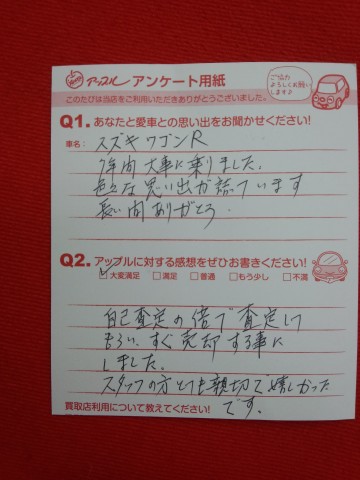 アップル アンケート用紙
ご協力
よろしくお願い
します♪
このたびは当店をご利用いただきありがとうございました。
Q1. あなたと愛車との思い出をお聞かせください!
車名: スズキ ワゴンR
7年間大事に乗りました。
色々な思い出が詰ています
長い間ありがとう。
Q2. アップルに対する感想をぜひお書きください!
大変満足 満足 普通 もう少し 不満
自己査定の倍で査定して
もらい、すぐ売却する事に
しました。
スタッフの方とても親切で嬉しかった
です。
買取店利用について教えてください!